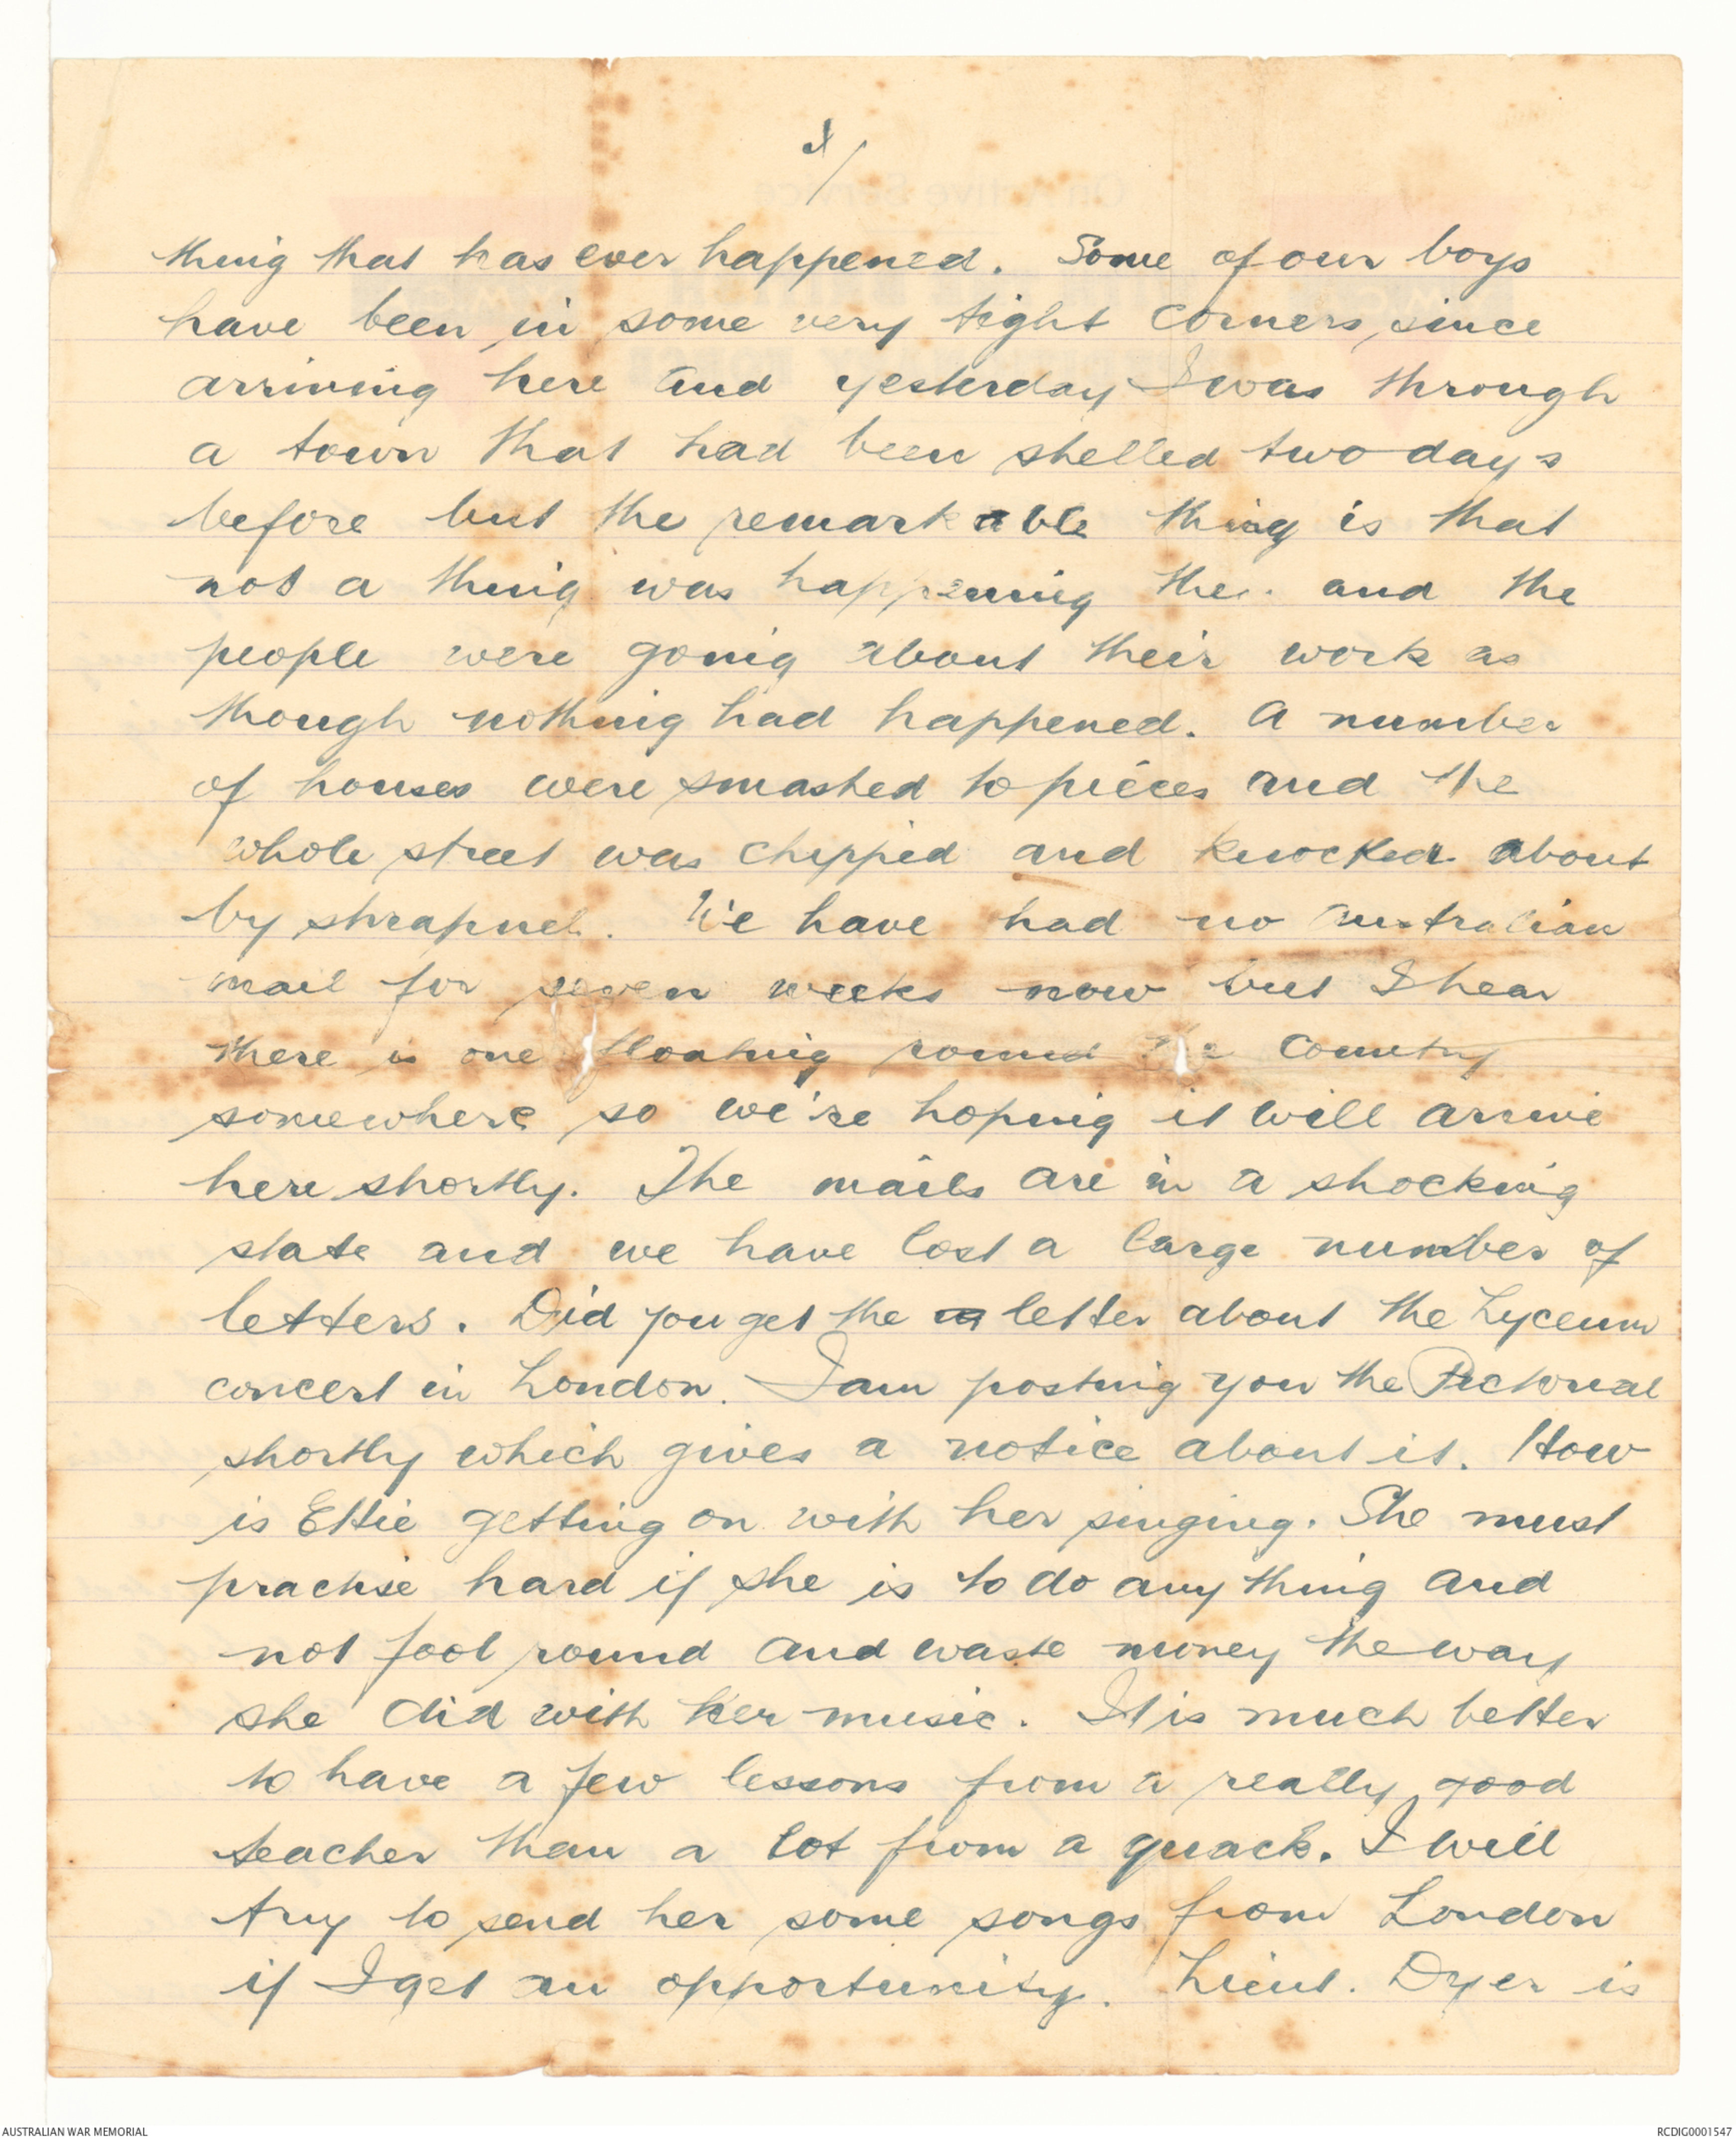 thing that has ever happened. Some of our boys
have been in some very tight corners, since
arriving here and yesterday I was through
a town that had been shelled two days
before but the remarkable thing is that
not a thing was happening then and the
people were going about their work as
though nothing had happened. A number
of houses were smashed to pieces and the
whole street was chipped and knocked about
by shrapnel. We have had no Australian
mail for seven weeks now but I hear
there is one floating round the country
somewhere so we're hoping it will arrive
here shortly. The mails are in a shocking
state and we have lost a large number of
letters. Did you get the letter about the Lyceum
concert in London. I am posting you the Pictorial
shortly which gives a notice about it. How
is Ettie getting on with her singing. She must
practise hard if she is to do anything and
not fool round and waste money the way
she did with her music. It is much better
to have a few lessons from a really good
teacher than a lot from a quack. I will
try to send her some songs from London
if I get an opportunity. Lieut. Dyer is
AUSTRALIAN WAR MEMORIAL
RCDIG0001547